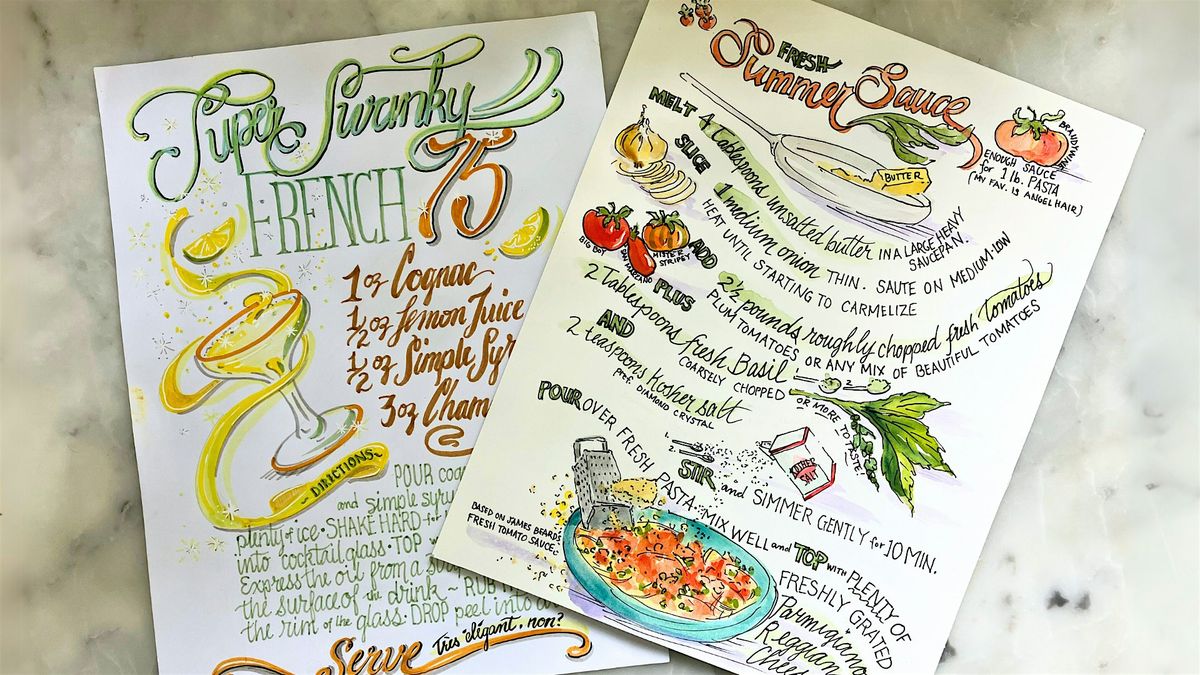 Super Swanky
FRENCH 75
1 oz Cognac
1/2 oz Lemon Juice
1/2 oz Simple Syr
3 oz Cham
~DIRECTIONS~
POUR cog
and simple syru
plenty of ice · SHAKE HARD
into cocktail glass · TOP
Express the oil from a
the surface of the drink ~ RUB
the rim of the glass · DROP peel into
Serve très élégant, non?
FRESH
Summer Sauce
BRANDYWINE
ENOUGH SAUCE
for 1 lb. PASTA
(MY FAV. IS ANGEL HAIR)
MELT 4 Tablespoons unsatted butter IN A LARGE HEAVY
SAUCEPAN.
BUTTER
SLICE 1 medium onion THIN. SAUTE ON MEDIUM-LOW
HEAT UNTIL STARTING TO CARMELIZE
BIG BOY
SAN MARZANO
MISTER
STRIPEY
ADD 2½ pounds roughly chopped fresh Tomatoes
PLUM TOMATOES OR ANY MIX OF BEAUTIFUL TOMATOES
PLUS
2 Tablespoons fresh Basil
COARSELY CHOPPED OR MORE TO TASTE!
AND
2 teaspoons Kosher salt
pref. DIAMOND CRYSTAL
KOSHER
SALT
STIR and SIMMER GENTLY for 10 MIN.
POUR OVER FRESH PASTA. MIX WELL and TOP WITH PLENTY OF
FRESHLY GRATED
Parmigiano
Reggian
Chees
BASED ON JAMES BEARDS
FRESH TOMATO SAUCE